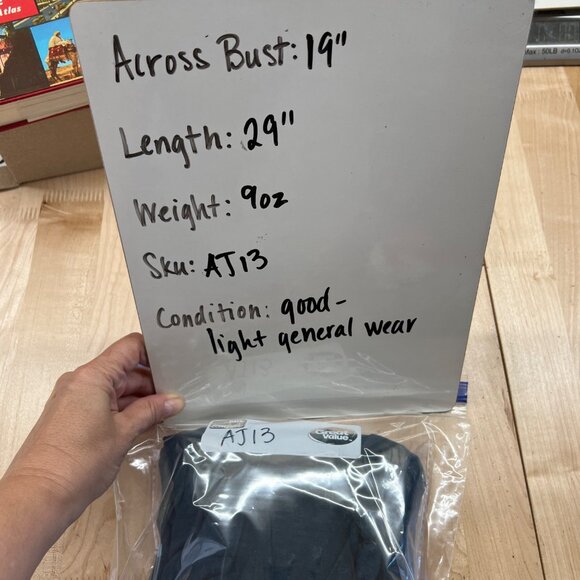 Atlas
Max: 50LB
Across Bust: 19"
Length: 29"
Weight: 9oz
Sku: AJ13
Condition: good-
light general wear
AJ13
Great Value